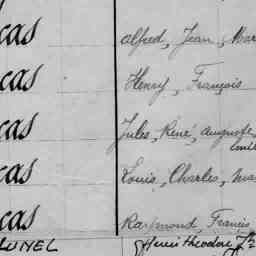 cas Alfred, Jean, Mar
cas Henry, François
cas Jules, René, Auguste,
cas Louis, Charles, Ma
cas Raymond, Francis
LUNEL